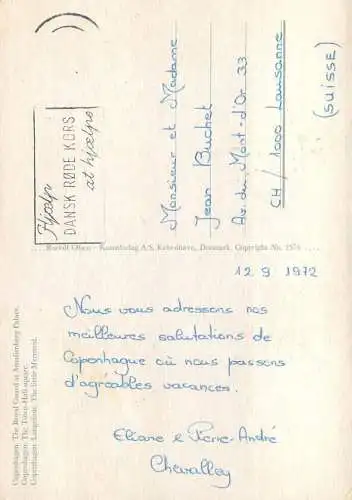 Hjælp
DANSK RØDE KORS
at hjælpe
Monsieur et Madame
Jean Buchet
Av. du Mont-d'Or 33
CH / 1000 Lausanne
(SUISSE)
Rudolf Olsen - Kunstforlag A/S, København, Denmark. Copyright No.
12.9.1972
Nous vous adressons nos
meilleures salutations de
Copenhague où nous passons
d'agréables vacances.
Eliane & Pierre-André
Chevalley
Copenhagen: The Royal Guard at Amalienborg Palace.
Copenhagen: The Town-Hall square.
Copenhagen: Langelinie. The little Mermaid.